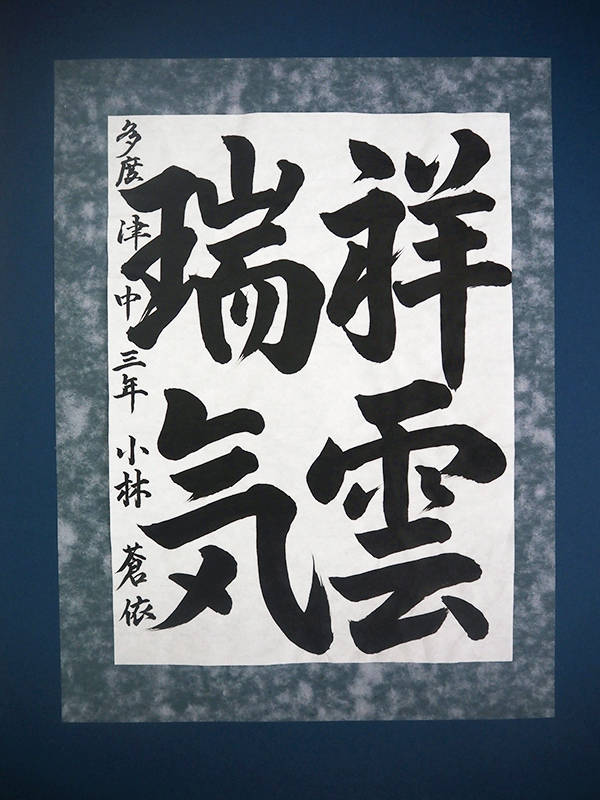 祥雲
瑞気
多度津中三年 小林 蒼依